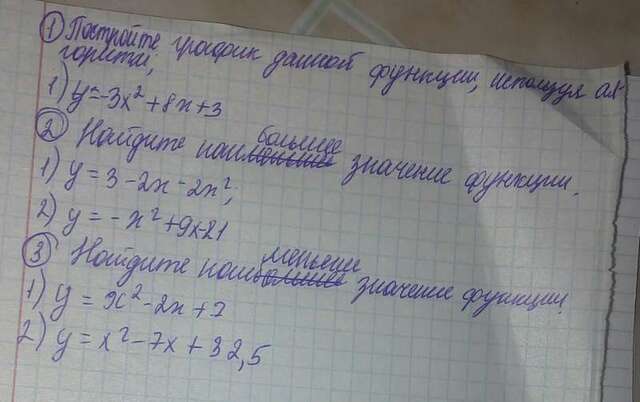 ① Постройте график данной функции, используя ал-
горитм;
1) y=-3x²+8x+3
② Найдите наибольшее значение функции.
1) y=3-2x-2x²;
2) y=-x²+9x-21
③ Найдите наименьшее значение функции.
1) y=x²-2x+7
2) y=x²-7x+32,5